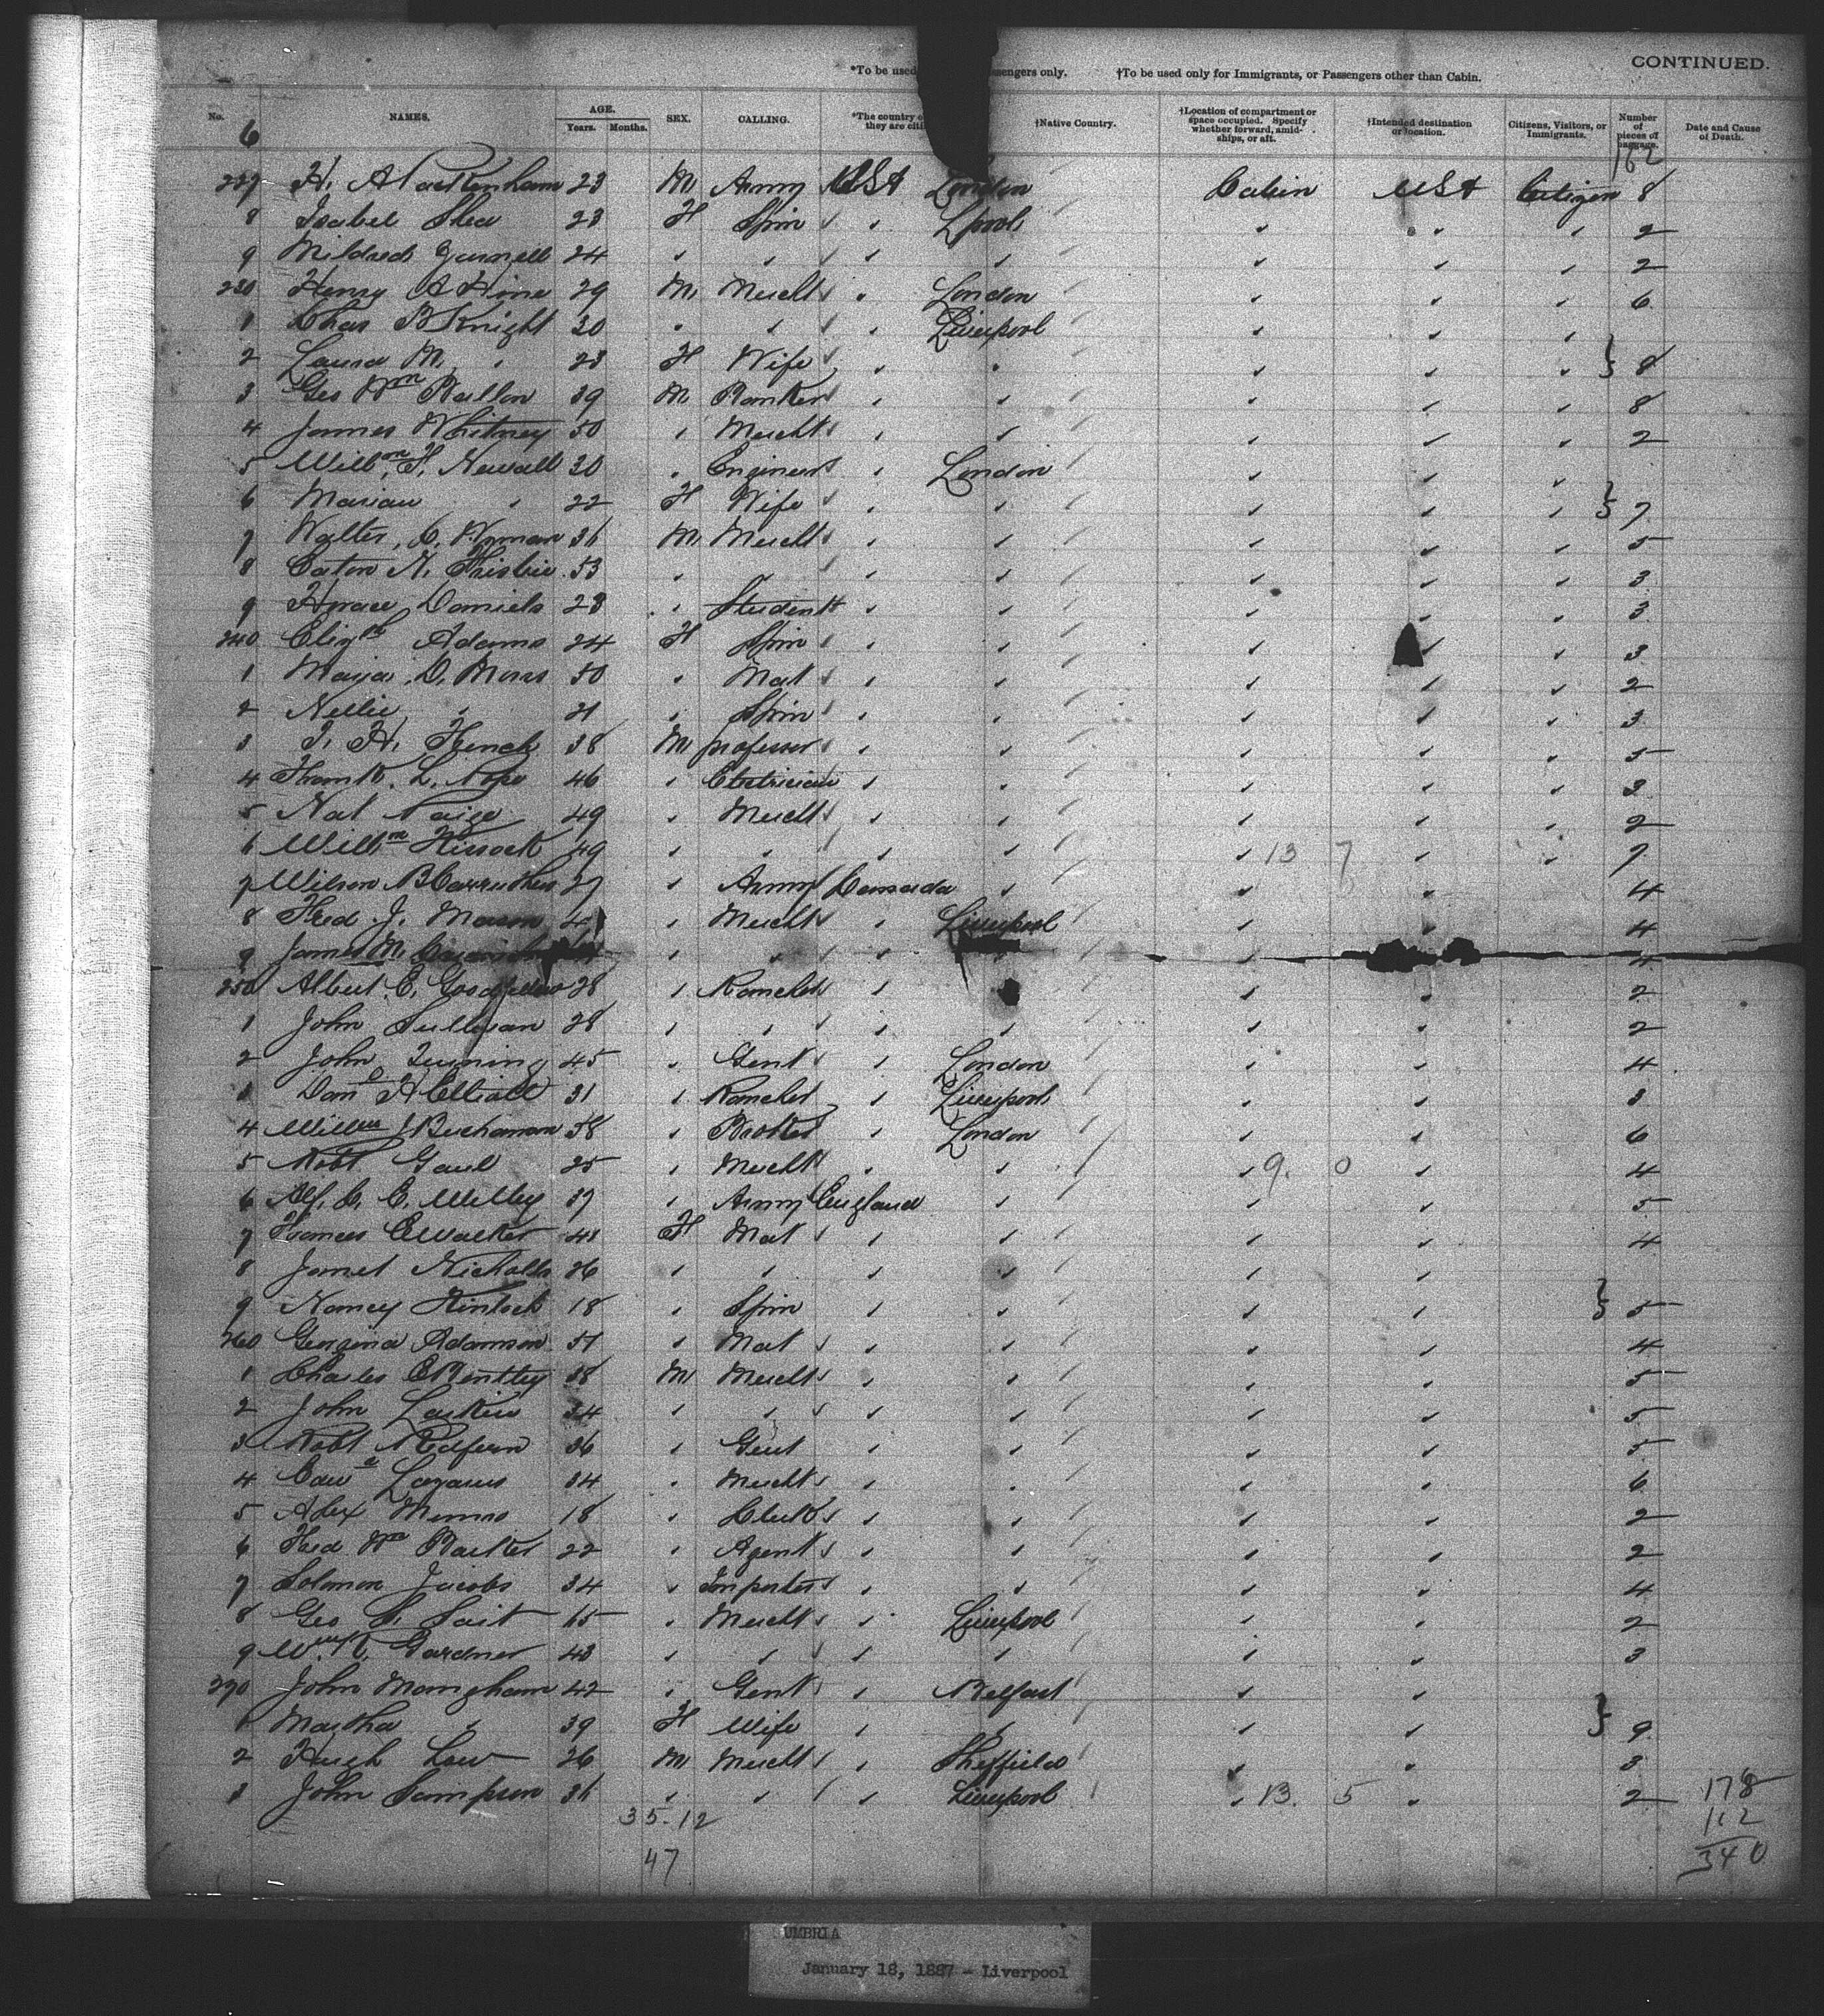 CONTINUED.
*To be used ssengers only. †To be used only for Immigrants, or Passengers other than Cabin.
No. NAMES. AGE. Years. Months. SEX. CALLING. *The country o they are citi †Native Country. †Location of compartment or space occupied. Specify whether forward, amid-ships, or aft. †Intended destination or location. Citizens, Visitors, or Immigrants. Number of pieces of baggage. Date and Cause of Death.
6 162
227 H. A Packenham 23 M Army USA London Cabin USA Citizen 8
8 Isabel Shea 23 F Spin " Lpool " " " 2
9 Mildred 24 " " " " " " " 2
230 Henry A Hine 29 M Mercht " London " " " 6
1 Chas B Knight 30 " " " Liverpool " " "
2 Laura M. " 23 F Wife " " " " " } 8
3 Geo Wm Ballou 39 M Banker " " " " " 8
4 James Whitney 50 " Mercht " " " " " 2
5 Willm F. Newall 30 " Engineer " London " " "
6 Marian " 22 F Wife " " " " " } 7
7 Walter, C. Wyman 36 M Mercht " " " " " 5
8 Eaton N. Frisbie 53 " " " " " " " 3
9 Horace Daniels 23 " Student " " " " " 3
240 Elizth Adams 24 F Spin " " " " " 3
1 Maria D. Moss 50 " Mat " " " " " 2
2 Nellie " 21 " Spin " " " " " 3
3 T. H. French 38 M professor " " " " " 5
4 Frank L. Pope 46 " Electrician " " " " " 3
5 Nat Paige 49 " Mercht " " " " " 2
6 Willm Kissock 49 " " " " " 13 7 " " 7
7 Wilson B Carruthers 27 " Army Canada " " " 4
8 Fred J. Mason " Mercht " Liverpool " " 4
9 James M. " " " " " 4
250 Albert E. Goodfellow 28 " Rancher " " " 2
1 John Sullivan 28 " " " " " " 2
2 John Twining 45 " Gent " London " " 4
3 Danl H Elliott 31 " Rancher " Liverpool " " 3
4 Willm J Buchanan 38 " Broker " London " " 6
5 Robt Gaul 25 " Mercht " " " 9. 0 " 4
6 Alf. C. E. Welby 37 " Army England " " " 5
7 Frances E Walker 43 F Mat " " " " 4
8 Janet Nicholls 26 " " " " " "
9 Nancy Kinloch 18 " Spin " " " " } 5
260 Georgina Adamson 51 " Mat " " " " 4
1 Charles E Bentley 38 M Mercht " " " " 5
2 John Larkin 34 " " " " " " 5
3 Robt Redfern 36 " Gent " " " " 5
4 Edwd Lazarus 34 " Mercht " " " " 6
5 Alex Munro 18 " Clerk " " " " 2
6 Fred Wm Barker 22 " Agent " " " " 2
7 Solomon Jacobs 34 " Importer " " " " 4
8 Geo S. Sait 65 " Mercht " Liverpool " " 2
9 Wm R. Gardner 43 " " " " " " 3
270 John Mangham 42 " Gent " Belfast " "
1 Martha " 39 F Wife " " " " } 9
2 Hugh Law 26 M Mercht " Sheffield " " 3
3 John Sampson 36 " " " Liverpool " 13. 5 " 2
35.12
47
178
162
340
UMBRIA
January 18, 1887 - Liverpool